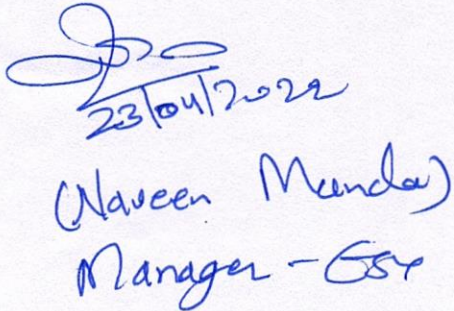 23/04/2022
(Naveen Munda)
Manager -